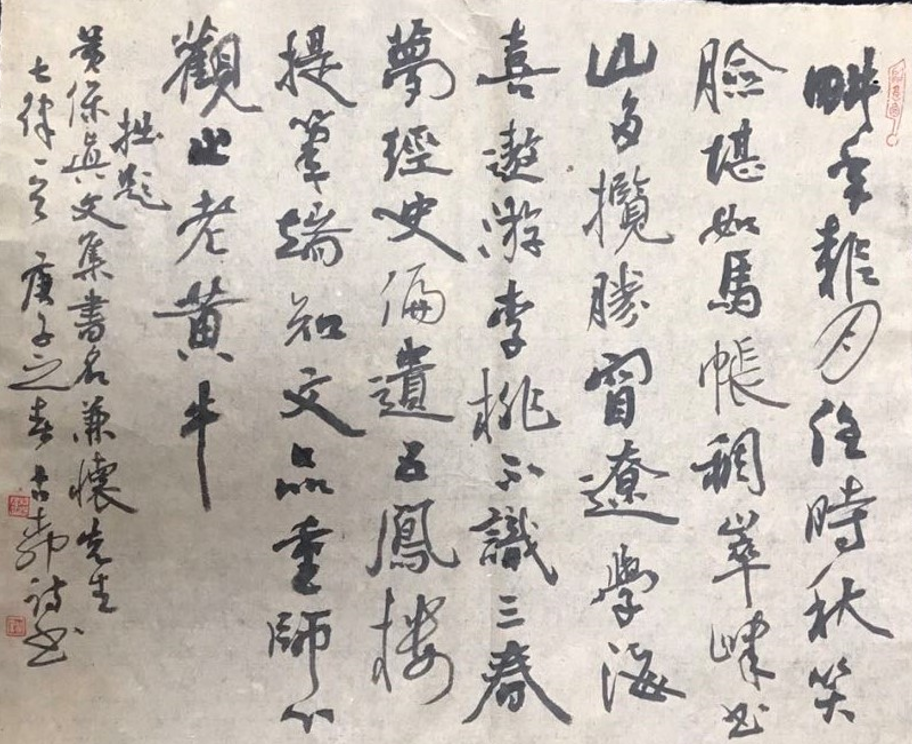 畊月任時秋笑
臉堪如馬帳稠崒嵂書
山多攬勝窅遼學海
喜遨游李桃不識三春
夢經史偏遺五鳳樓
提筆端知文品重師心
觀止老黃牛
拙題
黄保真文集書名兼懷先生
七律一首庚子之春古詩書